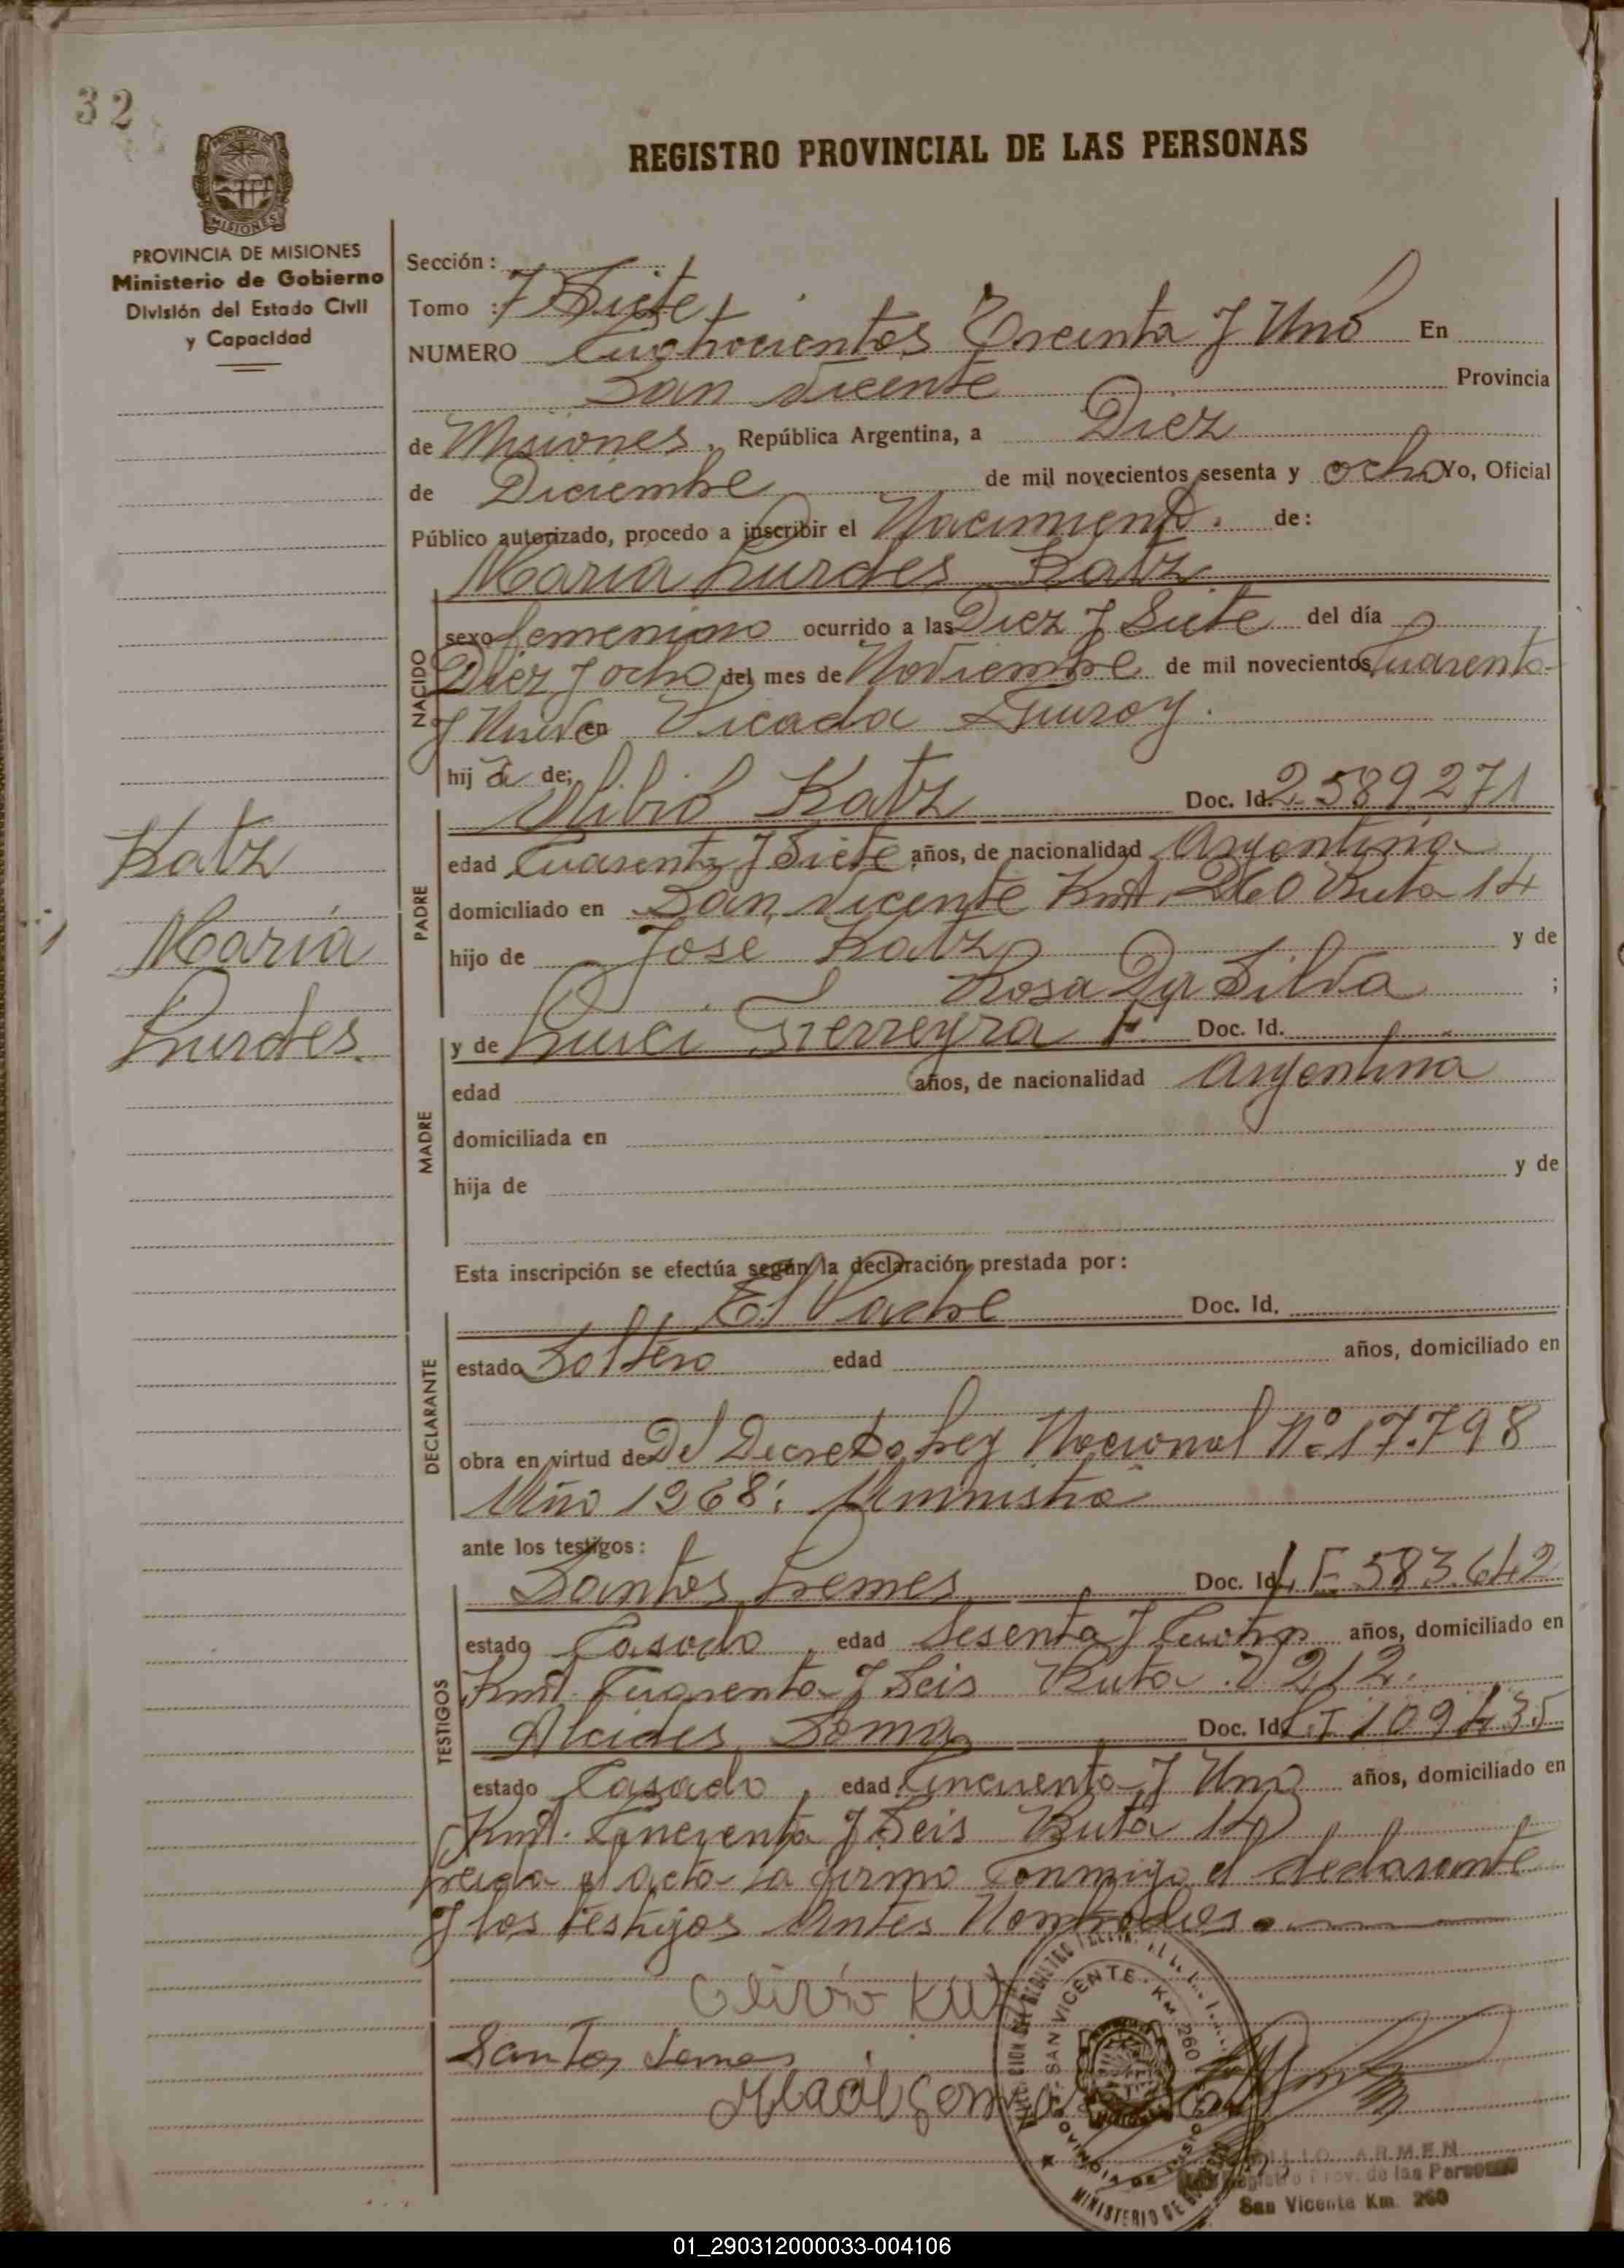 32
PROVINCIA DE MISIONES
MISIONES
PROVINCIA DE MISIONES
Ministerio de Gobierno
División del Estado Civil
y Capacidad
REGISTRO PROVINCIAL DE LAS PERSONAS
Sección:
Tomo : 7 Siete
NUMERO Cuatrocientos Treinta y Uno En
San Vicente Provincia
de Misiones, República Argentina, a Diez
de Diciembre de mil novecientos sesenta y ocho Yo, Oficial
Público autorizado, procedo a inscribir el Nacimiento. de:
Maria Lurdes Katz
NACIDO
sexo femenino ocurrido a las Diez y Siete del día
Diez y ocho del mes de Noviembre de mil novecientos Cuarenta
y Nueve en Picada
hij a de;
PADRE
Katz Doc. Id. 2.589.271
edad Cuarenta y Siete años, de nacionalidad Argentina
domiciliado en San Vicente Kmt. 260 Ruta 14
hijo de José Katz y de
Rosa Da Silva ;
MADRE
y de Ferreyra F. Doc. Id.
edad años, de nacionalidad Argentina
domiciliada en
hija de y de
Katz
María
Lurdes.
Esta inscripción se efectúa según la declaración prestada por:
DECLARANTE
El Padre Doc. Id.
estado Soltero edad años, domiciliado en
obra en virtud de Del Decreto Ley Nacional Nº 17.798
Año 1968; Amnistia
ante los testigos:
TESTIGOS
Santos Lemes Doc. Id. 583.642
estado Casado, edad Sesenta y Cuatro años, domiciliado en
Kmt. Cuarenta y Seis Ruta 212.
Alcides Doc. Id. 109.435
estado Casado, edad Cincuenta y Uno años, domiciliado en
Kmt. Cincuenta y Seis Ruta 14
Leida el acta la firma Conmigo el declarante
y los testigos Antes Nombrados.
Olivio
Santos Lemes
SAN VICENTE - KM 260
PROVINCIA DE MISIONES
MINISTERIO DE
Registro Prov. de las Personas
San Vicente Km. 260
01_290312000033-004106